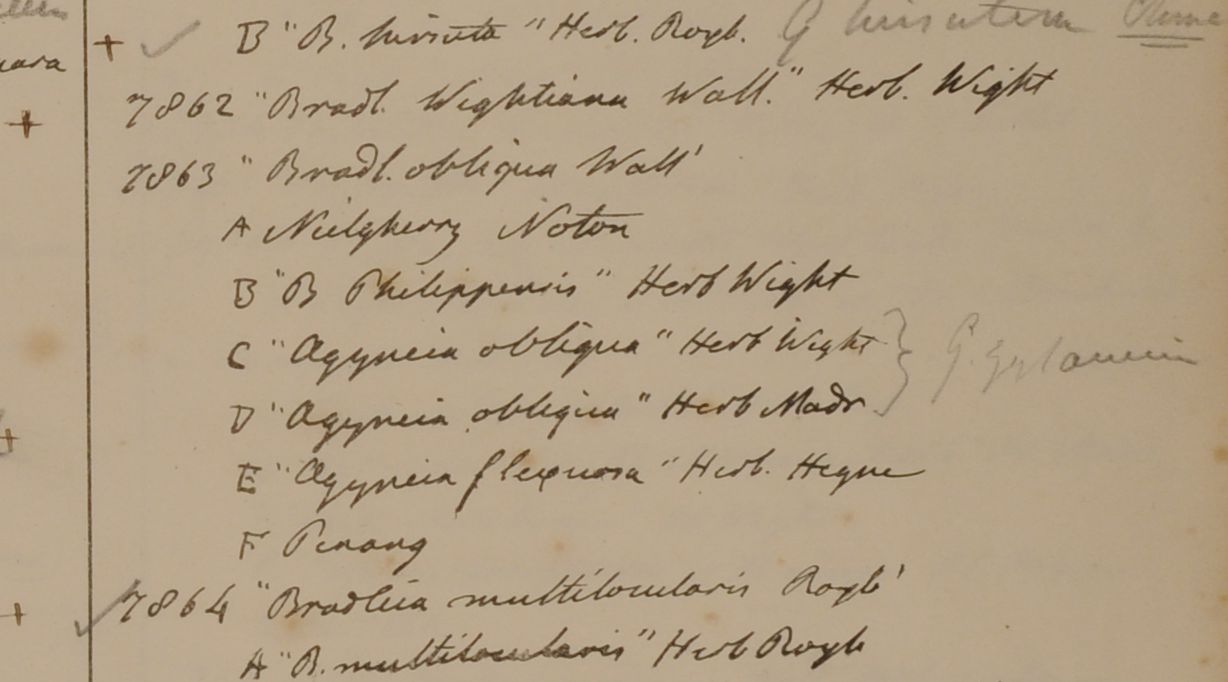 B "B. hirsuta" Herb. Roxb. G hirsutum
7862 "Bradl. Wightiana Wall." Herb. Wight
7863 "Bradl. obliqua Wall'
A Neilgherry Noton
B "B Philippensis" Herb Wight
C "Agyneia obliqua" Herb Wight
D "Agyneia obliqua" Herb Madr
E "Agyneia flexuosa" Herb. Heyne
F Penang
7864 "Bradleia multilocularis Roxb'
A "B. multilocularis" Herb Roxb